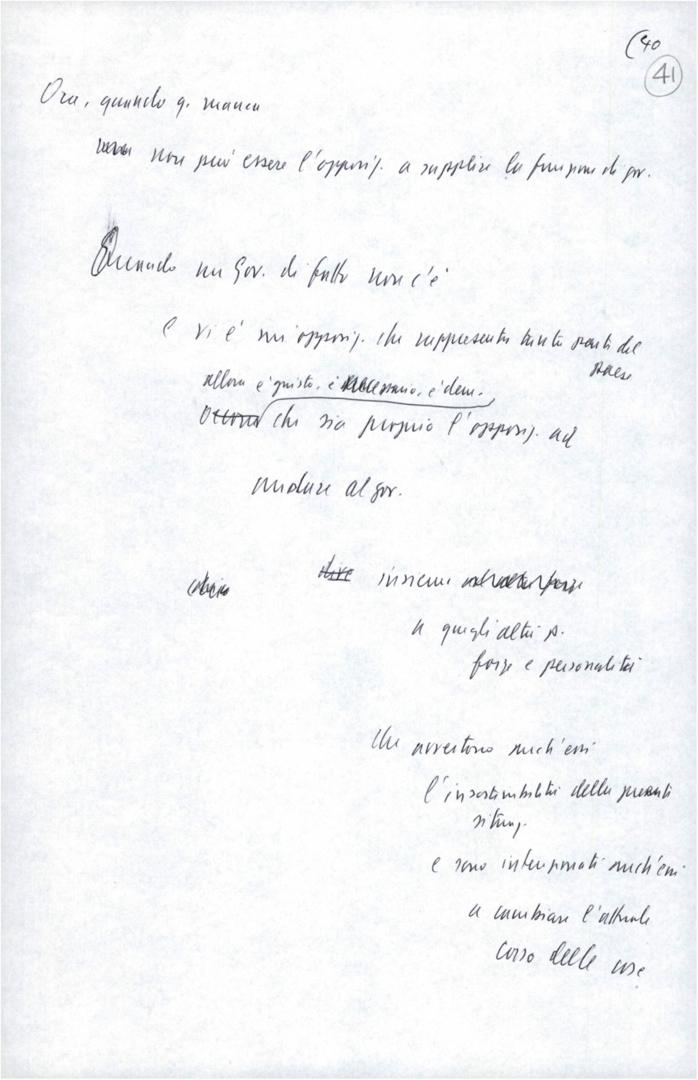 (40
41
Ora, quando q. manca
non può essere l'opposiz. a supplire la funzione di gov.
Quando un Gov. di fatto non c'è
e vi è un'opposiz. che rappresenta tanta parte del
paese
allora è giusto, è necessario, è dem.
che sia proprio l'opposiz. ad
andare al gov.
insieme
a quegli altri p.
forze e personalità
che avvertono anch'essi
l'insostenibilità della presente
situaz.
e sono intenzionati anch'essi
a cambiare l'attuale
corso delle cose